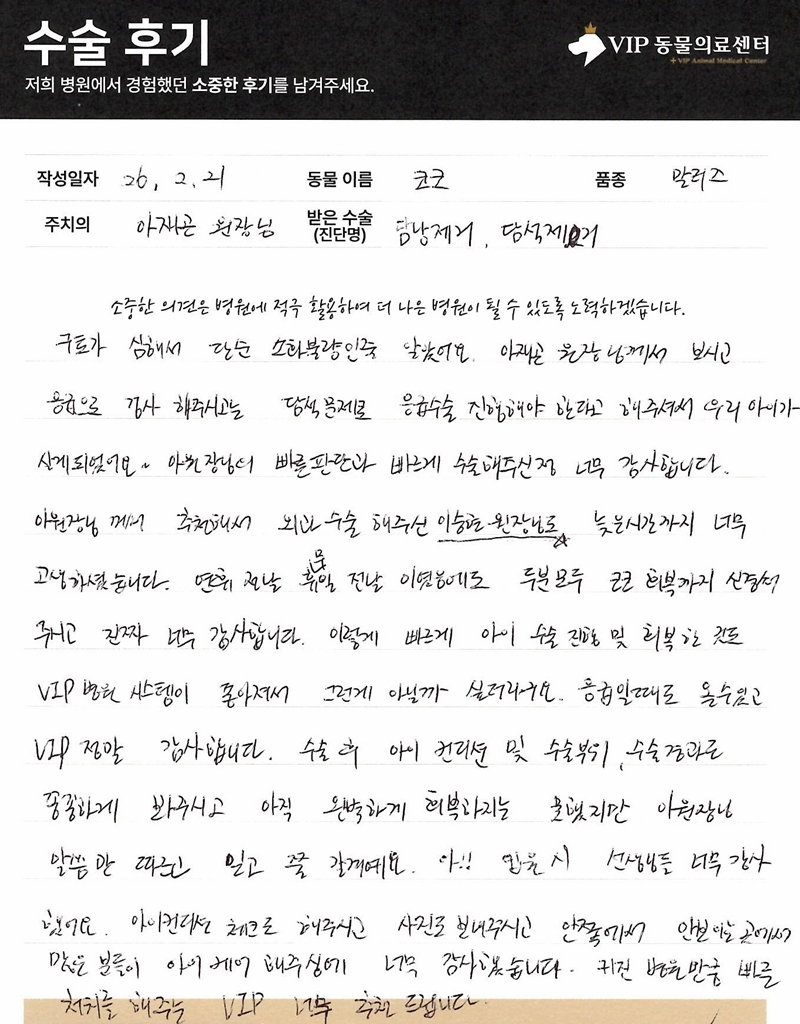 수술 후기
VIP 동물의료센터
VIP Animal Medical Center
저희 병원에서 경험했던 소중한 후기를 남겨주세요.
작성일자 26. 2. 21 동물 이름 코코 품종 말티즈
주치의 아재곤 원장님 받은 수술 (진단명) 담낭제거, 담석제거
소중한 의견은 병원에 적극 활용하여 더 나은 병원이 될 수 있도록 노력하겠습니다.
구토가 심해서 단순 소화불량인줄 알았어요. 아재곤 원장님께서 보시고
응급으로 검사 해주시고는 담석문제로 응급수술 진행해야 한다고 해주셔서 우리 아이가
살게되었어요~ 아원장님의 빠른판단과 빠르게 수술해주신점 너무 감사합니다.
아원장님 께서 추천해서 외과 수술 해주신 원장님도 늦은시간까지 너무
고생하셨습니다. 연휴 전날 휴일 전날 이였음에도 두분모두 코코 회복까지 신경써
주시고 진짜 너무 감사합니다. 이렇게 빠르게 아이 수술 진행 및 회복 한 것도
VIP 병원 시스템이 좋아져서 그런게 아닐까 싶더라구요. 응급일때도 올수있고
VIP 정말 감사합니다. 수술 후 아이 컨디션 및 수술부위, 수술경과도
꼼꼼하게 봐주시고 아직 완벽하게 회복하지는 못했지만 아원장님
말씀만 따르고 믿고 쭉 갈게요. 아!! 입원시 선생님들 너무 감사
했어요. 아이컨디션 체크도 해주시고 사진도 보내주시고 안쪽에서 안보이는 곳에서
많은 분들이 아이 케어 해주심에 너무 감사했습니다. 커진 병원만큼 빠른
처치를 해주는 VIP 너무 추천 드립니다.